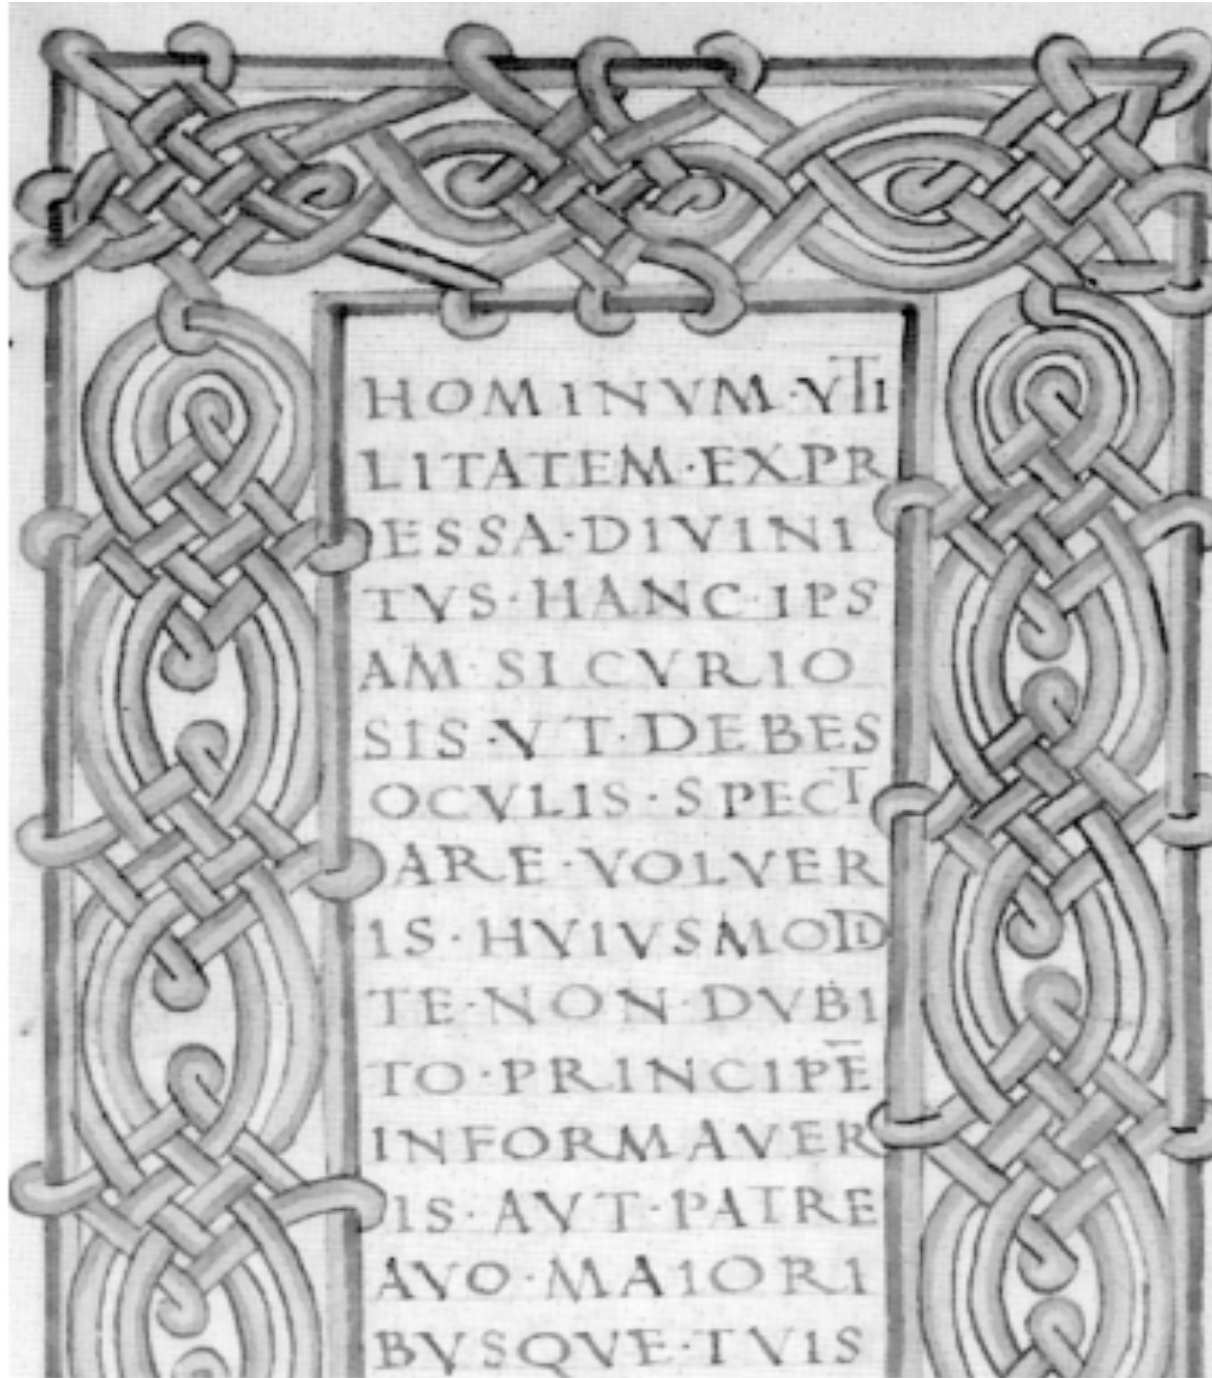 HOMINVM·VTI
LITATEM·EXPR
ESSA·DIVINI
TVS·HANC·IPS
AM·SI CVRIO
SIS·VT·DEBES
OCVLIS·SPECT
ARE·VOLVER
IS·HVIVSMODI
TE·NON·DVBI
TO·PRINCIPĒ
INFORMAVER
IS·AVT·PATRE
AVO·MAIORI
BVSQVE·TVIS